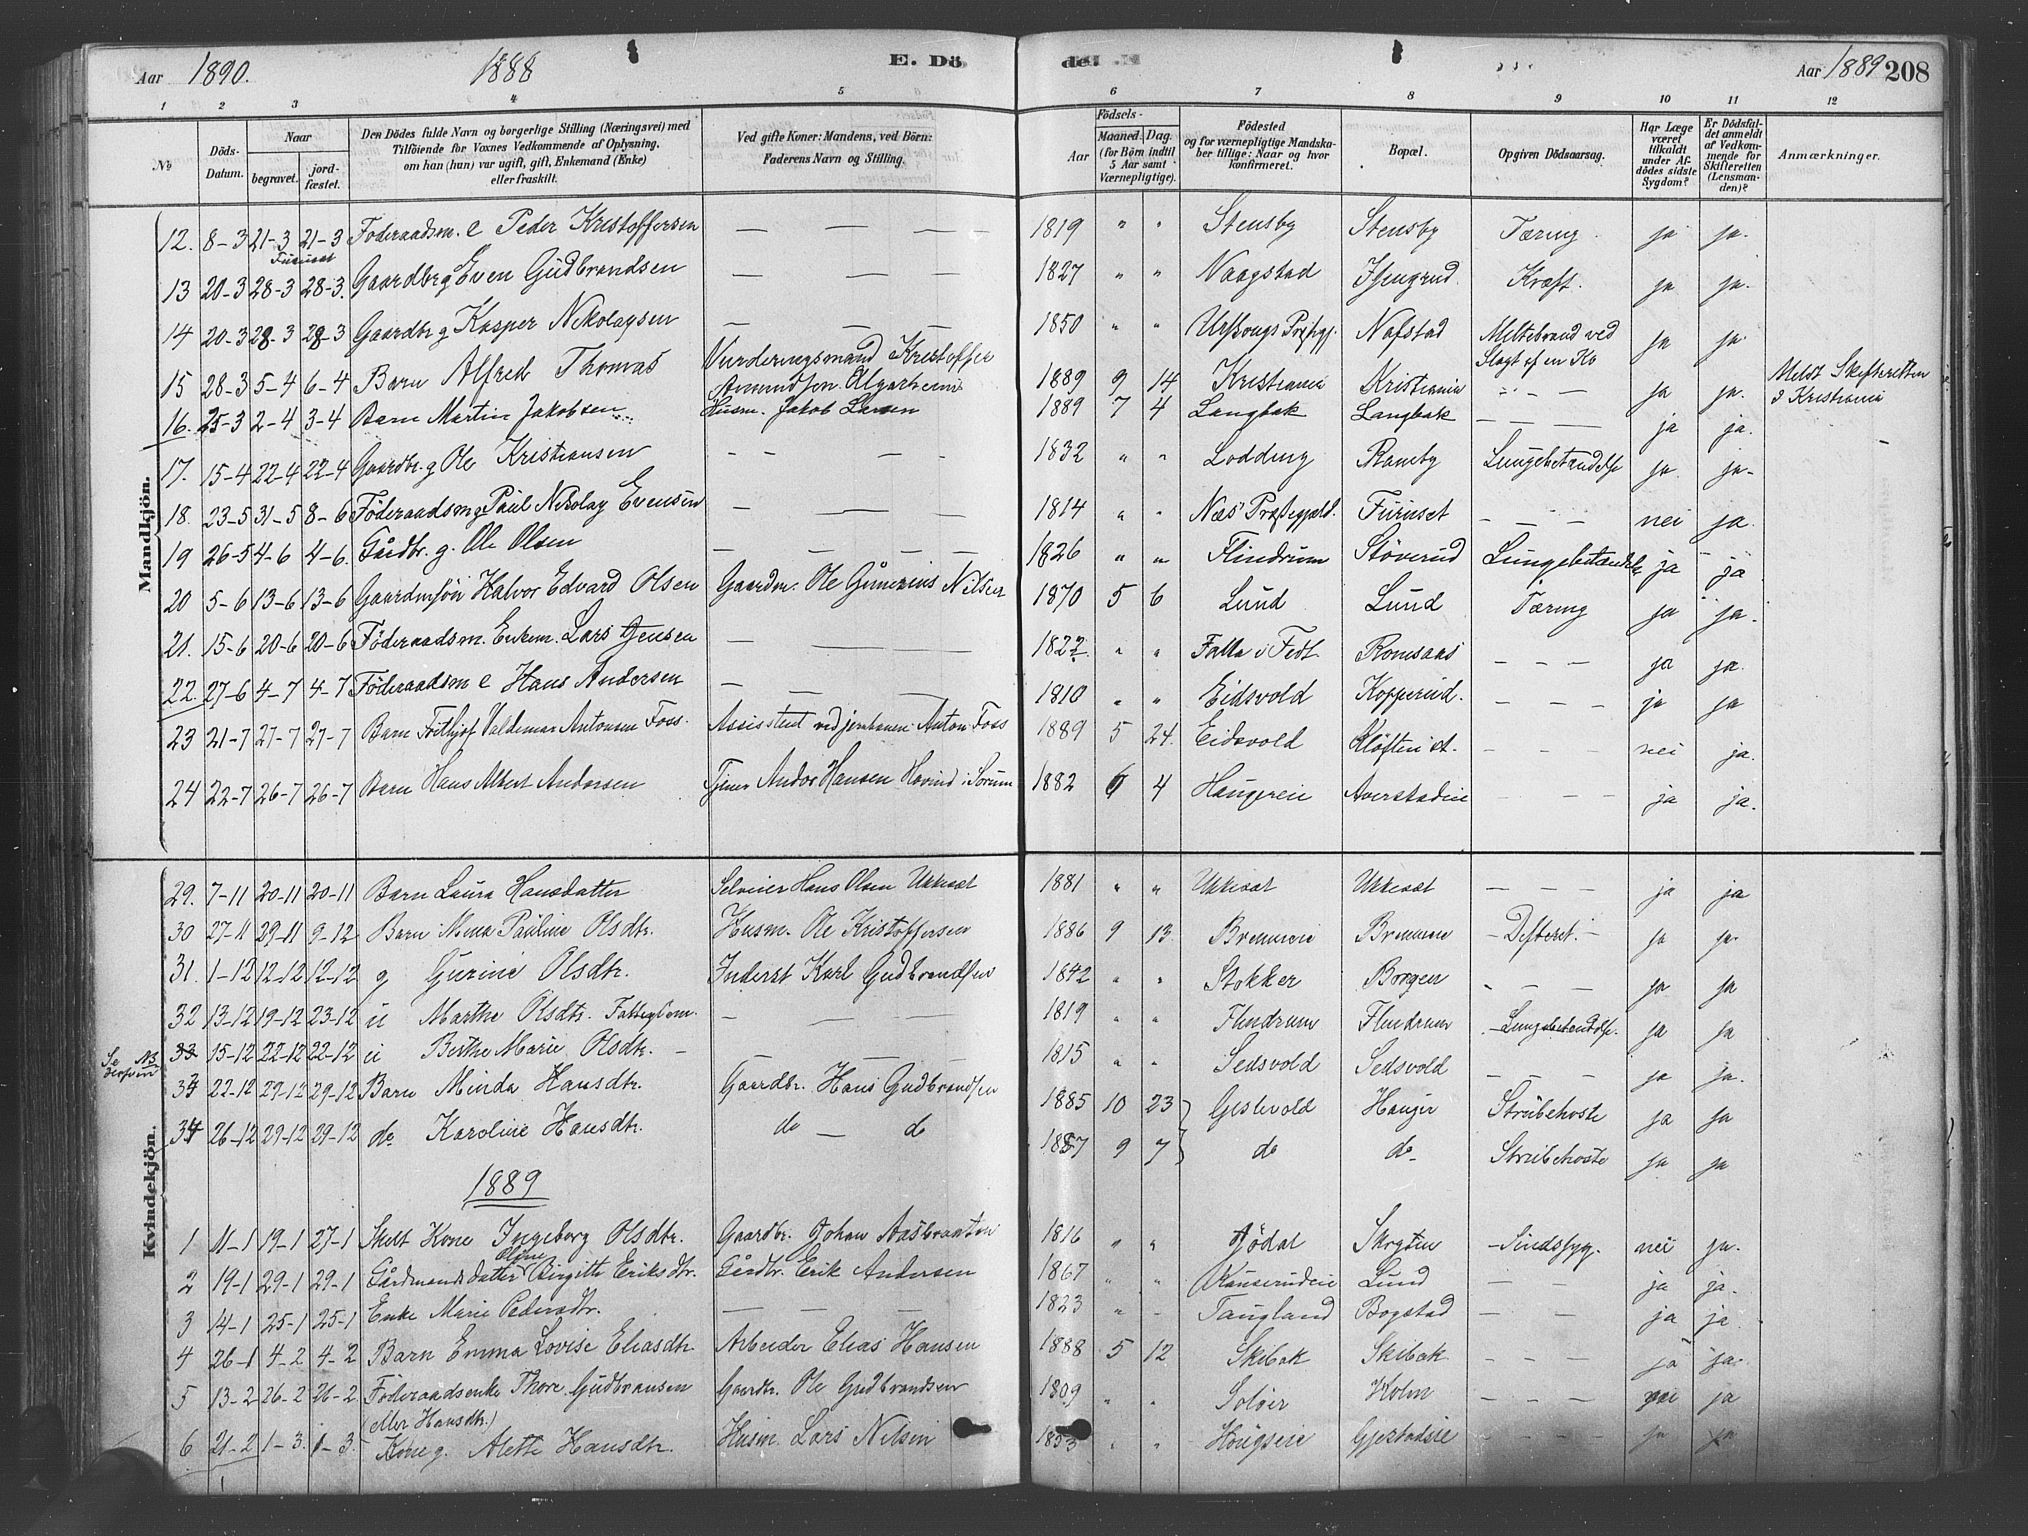 Aar 1890. 1888 E. Dö de. Aar 1889 208
1 2 3 4 5 6 7 8 9 10 11 12
No Döds-Datum. Naar begravet. jord-fæstet. Den Dödes fulde Navn og borgerlige Stilling (Næringsvei) med Tilföiende för Voxnes Vedkommende af Oplysning, om han (hun) var ugift, gift, Enkemand (Enke) eller fraskilt. Ved gifte Koner: Mandens, ved Börn: Faderens Navn og Stilling. Födsels- Aar Maaned. Dag. (for Börn indtil 5 Aar samt Værnepligtige). Födested og for værnepligtige Mandska-ber tillige: Naar og hvor konfirmeret. Bopæl. Opgiven Dödsaarsag. Har Læge været tilkaldt under Af-dödes sidste Sygdom? Er Dödsfal-det anmeldt af Vedkom-mende for Skifteretten (Lensman-den)? Anmærkninger.
Mandkjön.
12. 8-3 21-3 21-3 Föderaadsm. e Peder Kristoffersen — — — — 1819 " " Stensby Stensby Tæring. ja ja.
Furuset
13 20-3 28-3 28-3. Gaardbr g Even Gudbrandsen 1827 " " Naagstad Kræft. ja ja.
14 20-3 28-3 28-3 Gaardbr g Kasper Nikolaysen — — — 1850 " " Nafstad Miltebrand ved Slagt af en Ko ja ja.
15 28-3 5-4 6-4 Barn Alfred Thomas Vurderingsmand Kristoffer Amundsen 1889 9 14 Kristiania Kristiania " — — ja ja. Meldt Skifteretten i Kristiania
16. 25-3 2-4 3-4 Barn Martin Jakobsen Husm. Jakob Larsen 1889 7 4 Langbak Langbak — — — ja ja.
17. 15-4 22-4 22-4 Gaardbr. g Ole Kristiansen - - — - 1832 " " Lodding Raneby Lungebetændelse ja. ja.
18. 23-5 31-5 8-6 Föderaadsm g Paul Nikolay Evensen — — — 1814 " " Næs Præstegjæld. Furuset — — — nei ja.
19 26-5 4-6 4-6. Gårdbr. g. Ole Olsen — — — — 1826 " " Flindrum Stöverud Lungebetændelse ja ja
20 5-6 13-6 13-6 Gaardmsön Halvor Edvard Olsen Gaardm. Ole Gunerius Nilsen 1870 5 6 Lund Lund Tæring ja ja.
21. 15-6 20-6 20-6 Föderaadsm. Enkem. Lars Jensen — — — 1822. " " Falla i Fedt. Romsaas — — — ja ja.
22. 27-6 4-7 4-7 Föderaadsm e Hans Andersen — — — 1810 " " Eidsvold Kopperud. — — — ja ja
23 21-7 27-7 27-7 Barn Frithjof Valdemar Antonsen Foss. Assistent ved jernbanen Anton Foss 1889 5 24. Eidsvold Klöften st. — — — nei ja.
24 22-7 26-7 26-7 Barn Hans Albert Andersen Tjener Andor Hansen Hovind i Sörum 1882 6 4 Haugereie Averstadeie — — — ja ja.
Kvindekjön.
29. 7-11 20-11 20-11 Barn Laura Hansdatter Selveier Hans Olsen Ukkisat 1881 " " Ukkisat Ukkisat — — — ja ja
30 27-11 29-11 9-12 Barn Mina Pauline Olsdtr. Husm. Ole Kristoffersen 1886 9 13. - Difterit. - ja ja.
31. 1-12 12-12 12-12 g Gurine Olsdtr. Inderst Karl Gudbrandsen 1842 " " Stokker Borgen - — — ja ja
32 13-12 19-12 23-12 u Marthe Olsdtr. Fattiglem. — — — 1819 " " Flindrum Flindrum - Lungebetændelse. ja ja
Se
33 15-12 22-12 22-12 u Berthe Marie Olsdtr. — — — 1815 " " Sedsvold Sedsvold — — — ja ja.
33 22-12 29-12 29-12 Barn Minda Hansdtr. Gaardbr. Hans Gudbrandsen 1885 10 23 Gislevold Hauger Strubehoste ja ja
34 26-12 29-12 29-12 do Karoline Hansdtr. do — do 1887 9 7 do do Strubehoste ja ja
1889
1 11-1 19-1 27-1 Skilt Kone Ingeborg Olsdtr. Gaardbr. Johan Aasbraaten 1816 " " Jödal - Sindssyg. nei ja.
Oline
2 19-1 29-1 29-1 Gårdmandsdatter Birgitte Eriksdtr. Gårdbr. Erik Andersen 1867 " " Lund — — ja ja.
3 14-1 25-1 25-1 Enke Marie Pedersdtr. — — — 1823 " - Taugland Bogstad — — ja ja.
4 26-1 4-2 4-2 Barn Emma Lovise Eliasdtr. Arbeider Elias Hansen 1888 5 12 Skibak Skibak - - - ja ja.
5 13-2 26-2 26-2 Föderaadsenke Thore Gudbransen Gaardbr. Ole Gudbrandsen 1809 " " Solöer Holm - — — nei ja
(eller Hansdtr.)
6 21-2 1-3. 1-3. Kone g. Alette Hansdtr. Husm. Lars Nilsen 1853 " " Gjestadeie - — — ja ja